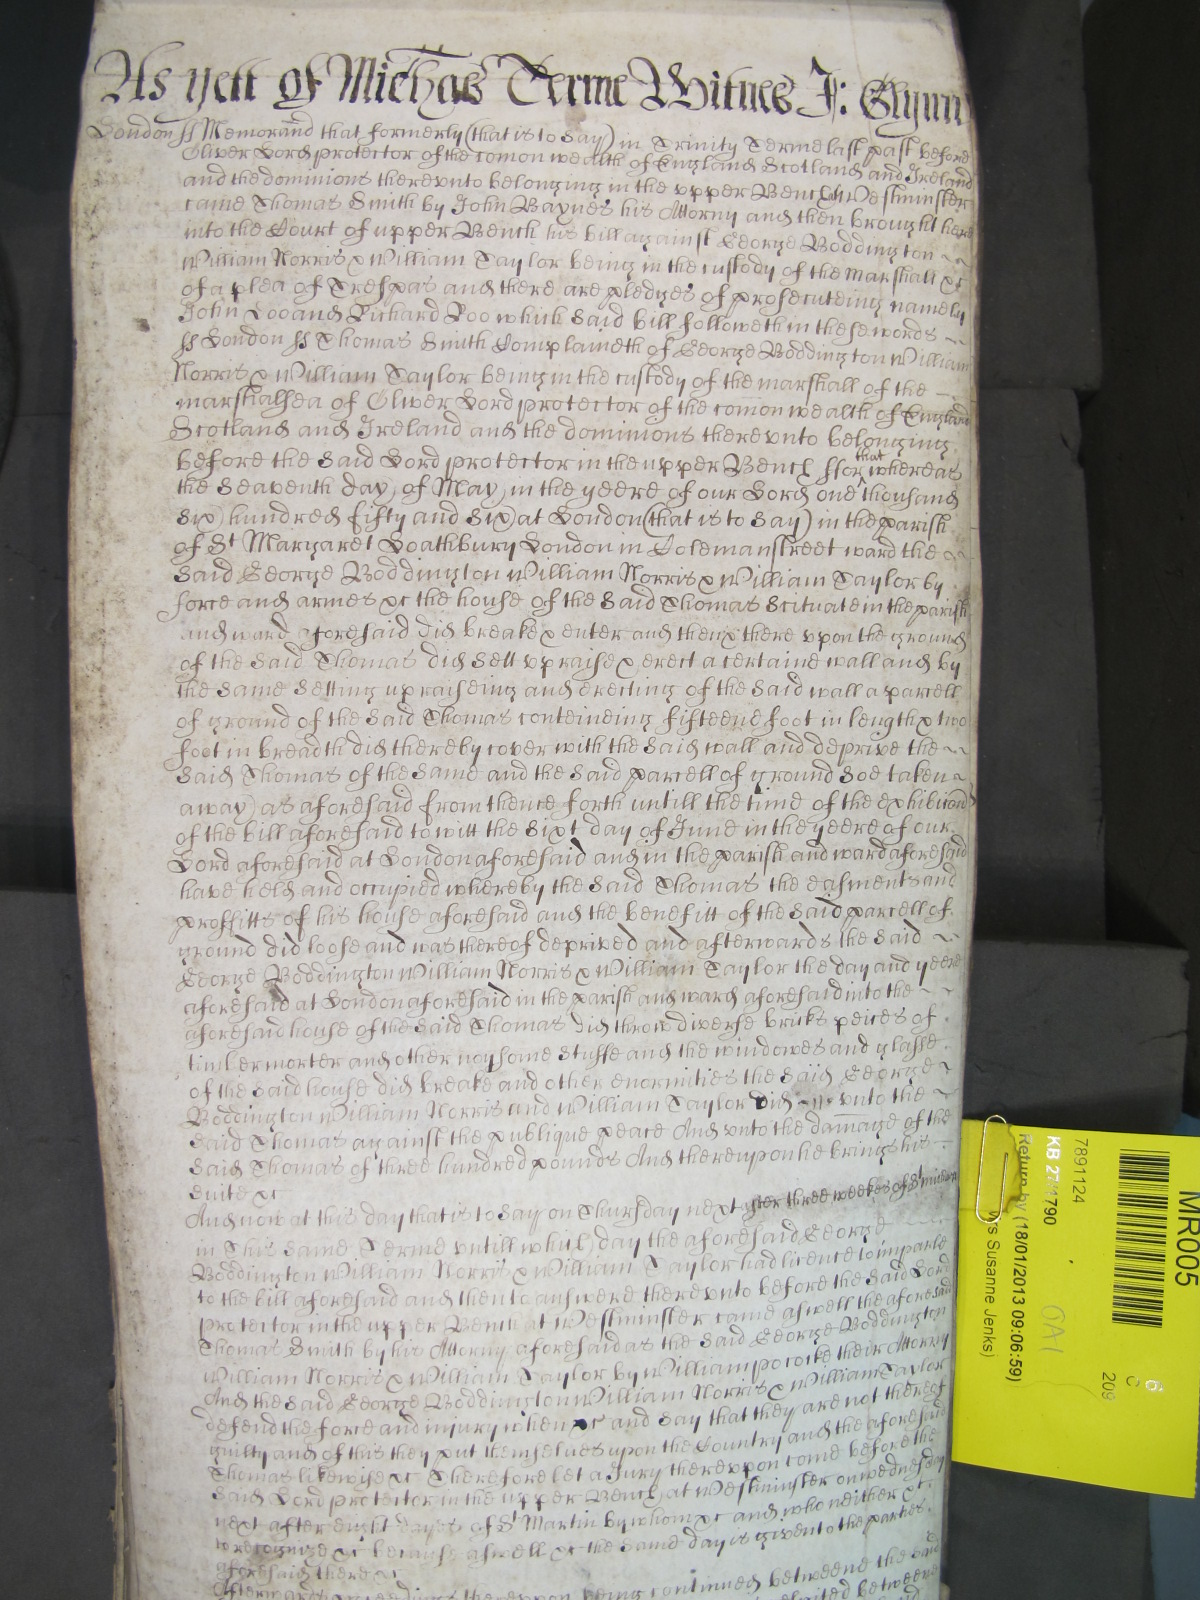 As yett of Michās Terme Witnes J: Glynn
London ss Memorand that formerly (that is to Say) in Trinity Terme last past before
Oliver Lord protector of the comon wealth of England Scotland and Ireland
and the dominions therevnto belonging in the vpper Bench at Westminster
came Thomas Smith by John Baynes his Attorny and then brought here
into the Court of upper Bench his bill against George Boddington
William Norris & William Taylor being in the custody of the marshall &c
of a plea of Trespas and there are pledges of prosecuteing namely
John Doo and Richard Roo which Said bill followeth in these words
ss London ss Thomas Smith Complaineth of George Boddington William
Norris & William Taylor being in the custody of the marshall of the
marshalsea of Oliver Lord protector of the comon wealth of England
Scotland and Ireland and the dominions there vnto belonging
before the Said Lord protector in the upper Bench ffor that whereas
the Seaventh day of May in the yeere of our Lord one thousand
Six hundred fifty and Six at London (that is to Say) in the parish
of St Margaret Loathbury London in Colemanstreet ward the
Said George Boddington William Norris & William Taylor by
force and armes &c the house of the Said Thomas Scituate in the parish
and ward aforesaid did breake & enter and then & there vpon the ground
of the Said Thomas did Sett vp raise & erect a certaine wall and by
the Same Setting up raiseing and erecting of the Said wall a parcell
of ground of the Said Thomas conteineing fifteene foot in length & two
foot in breadth did thereby cover with the Said wall and deprive the
Said Thomas of the Same and the Said parcell of ground Soe taken
away as aforesaid from thence forth untill the time of the exhibiting
of the bill aforesaid to witt the Sixt day of June in the yeere of our
Lord aforesaid at London aforesaid and in the parish and ward aforesaid
have held and occupied whereby the Said Thomas the easments and
proffitts of his house aforesaid and the benefitt of the Said parcell of
ground did loose and was thereof deprived and afterwards the Said
George Boddington William Norris & William Taylor the day and yeere
aforesaid at London aforesaid in the parish and ward aforesaid into the
aforesaid house of the Said Thomas did throw diverse bricks peices of
timber morter and other noysome Stuffe and the windowes and glasse
of the Said house did breake and other enormities the Said George
Boddington William Norris and William Taylor did vnto the
Said Thomas against the publique peace And vnto the damage of the
Said Thomas of three hundred pounds And thereupon he brings his
Suite &c
And now at this day that is to Say on Thursday next after three weekes of St
in this Same Terme vntill which day the aforesaid George
Boddington William Norris & William Taylor had licence to imparle
to the bill aforesaid and then to answere there vnto before the Said Lord
protector in the upper Bench at Westminster came aswell the aforesaid
Thomas Smith by his Attorny aforesaid as the Said George Boddington
William Norris & William Taylor by William pococke their Attorny
And the Said George Boddington William Norris & William Taylor
defend the force and injury when &c and Say that they are not thereof
guilty and of this they put themselves upon the Country and the aforesaid
Thomas likewise &c Therefore let a Jury thereupon come before the
Said Lord protector in the upper Bench at Westminster on wednesday
next after eight dayes of St Martin by whom &c and who neither &c
to recognize &c because aswell &c the Same day is given to the parties
aforesaid there &c
Afterwards thereupon being continued betweene the Said
betweene
MR005
7891124
KB 27/1790
Return by (18/01/2013 09:06:59)
Susanne Jenks)
OA1
6
C
209